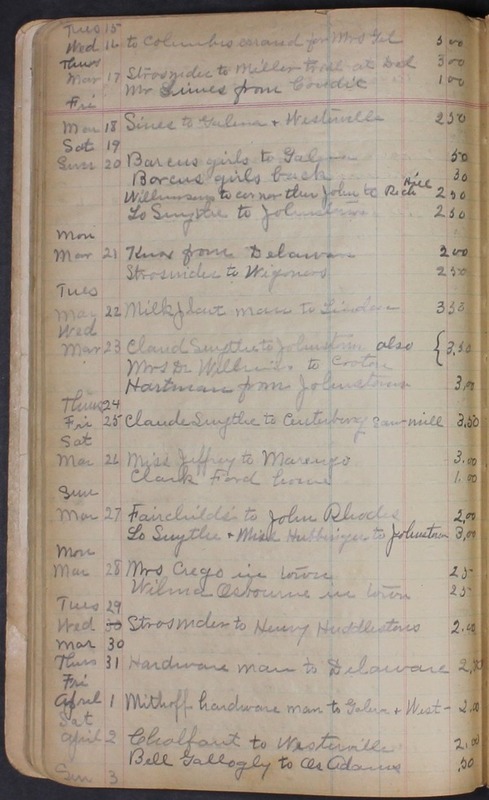 Tues 15
Wed 16 to Columbus errand for Mrs Gel 5 00
Thurs Strosnider to Miller at 3 00
Mar 17 Mr Sines from Condit 1 00
Fri
Mar 18 Sines to Galena + Westerville 2 50
Sat 19
Sun 20 Barcus girls to Galena 50
Barcus girls back 30
Williamson to corner then John to Rich Hill 2 50
Lo Smythe to Johnstown 2 50
Mon
Mar 21 Knox from Delaware 2 00
Strosnider to Wigoners 2 50
Tues
Mar 22 Milk plant man to Linden 3 50
Wed
Mar 23 Claud Smythe to Johnstown also { 3.50
Mrs Dr to Croton
Hartman from Johnstown 3.00
Thurs 24
Fri 25 Claude Smythe to Centerburg saw-mill 3.50
Sat
Mar 26 Miss Jeffrey to Marengo 3.00
Clark Ford home 1.00
Sun
Mar 27 Fairchilds to John Rhodes 2.00
Lo Smythe + Miss to Johnstown 3.00
Mon
Mar 28 Mrs Crego in town 25
Wilma Osbourne in town 25
Tues 29
Wed 30 Strosnider to Henry Huddlestons 2.00
Mar 30
Thurs 31 Hardware man to Delaware 2.00
Fri
April 1 Mithoff hardware man to Galena + West- 2.00
Sat
April 2 Chalfant to Westerville 2.00
Bell Gallogly to Os Adams .50
Sun 3